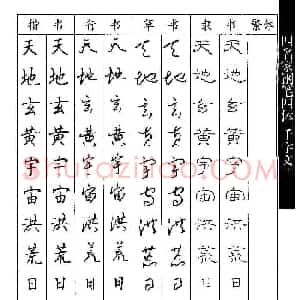 楷 书 行 书 草 书 隶 书 繁体
天 天 天 天 天 天 天 天
地 地 地 地 地 地 地 地
玄 玄 玄 玄 玄 玄 玄 玄
黄 黄 黄 黄 黄 黄 黄 黄
宇 宇 宇 宇 宇 宇 宇 宇
宙 宙 宙 宙 宙 宙 宙 宙
洪 洪 洪 洪 洪 洪 洪 洪
荒 荒 荒 荒 荒 荒 荒 荒
日 日 日 日 日 日 日 日
四名家钢笔四体 千字文